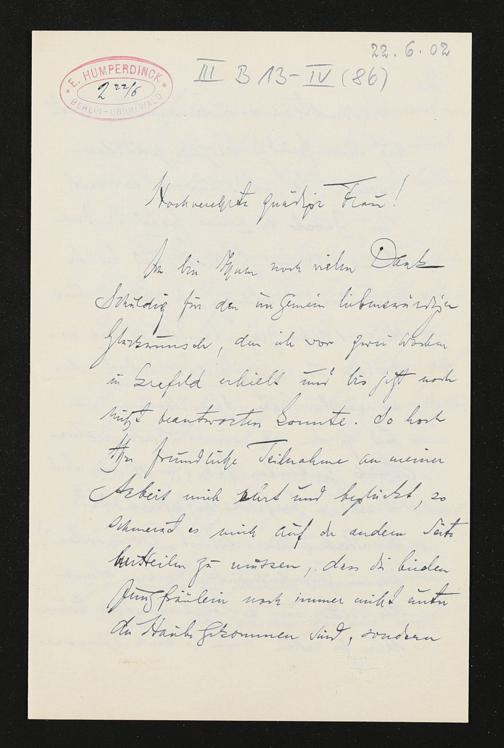 22.6.02
III B 13-IV (86)
* E. HUMPERDINCK *
2 22/6
BERLIN-GRUNEWALD
Hochverehrte gnädige Frau!
Ich bin Ihnen noch vielen Dank
schuldig für den ungemein liebenswürdigen
Glückwunsch, den ich vor zwei Wochen
in Crefeld erhielt und bis jetzt noch
nicht beantworten konnte. So hoch
Ihre freundliche Teilnahme an meiner
Arbeit mich ehrt und beglückt, so
schmerzt es mich auf der andern Seite
zu müssen, dass die beiden
Jungfräulein noch immer nicht unter
die Haube gekommen sind, sondern